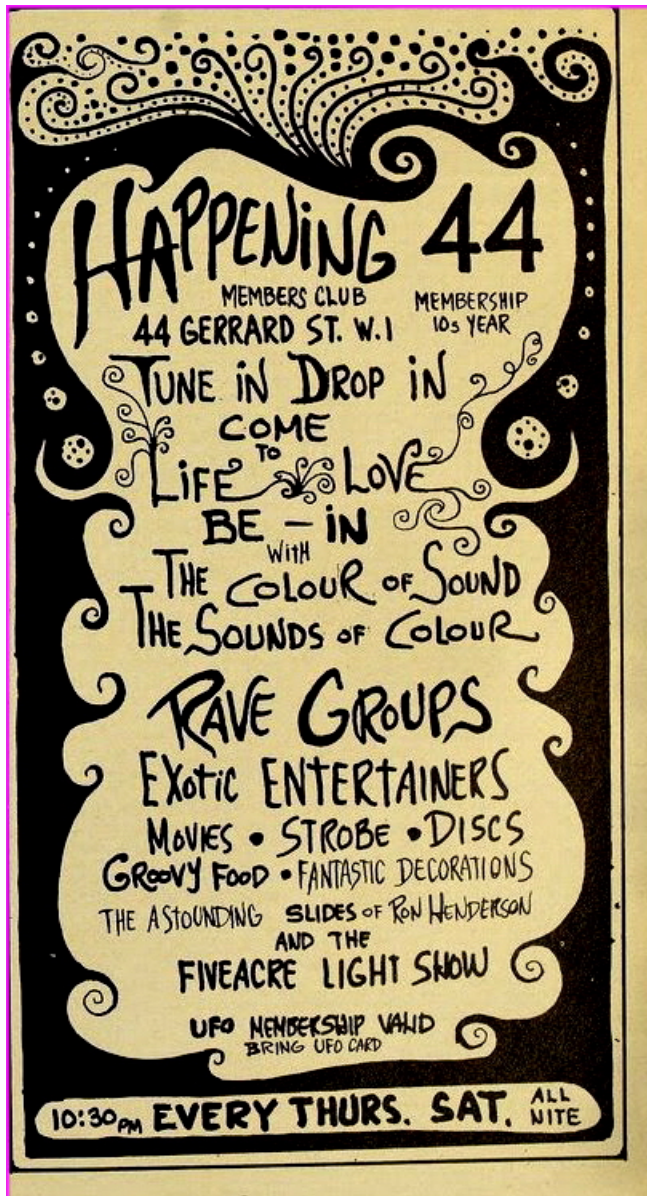 HAPPENING 44
MEMBERS CLUB
MEMBERSHIP
10s YEAR
44 GERRARD ST. W.1
TUNE iN DROP iN
COME
TO
LiFE LOVE
BE - iN
WiTH
THE COLOUR OF SOUND
THE SOUNDS OF COLOUR
RAVE GROUPS
EXOTiC ENTERTAINERS
MOVIES • STROBE • DISCS
GROOVY FOOD • FANTASTIC DECORATIONS
THE ASTOUNDING SLIDES OF RON HENDERSON
AND THE
FIVEACRE LIGHT SHOW
UFO MEMBERSHIP VALID
BRING UFO CARD
10:30 PM EVERY THURS. SAT. ALL NITE